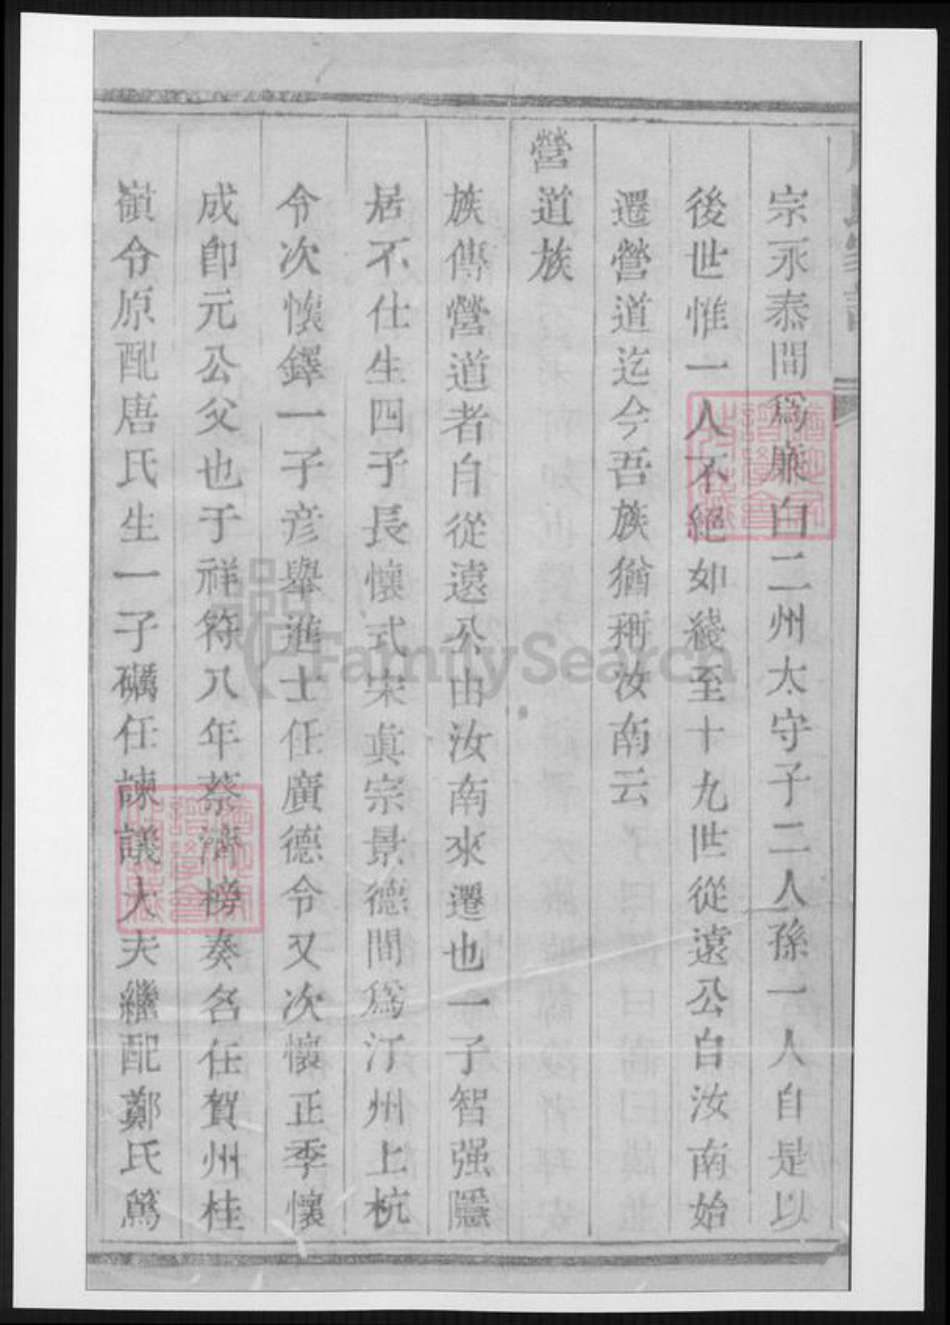 宗永泰間為廉白二州太守子二人孫一人自是以
後世惟一人不絕如綫至十九世從遠公自汝南始
遷營道迄今吾族猶稱汝南云
營道族
族傳營道者自從遠公由汝南來遷也一子智强隱
居不仕生四子長懷式宋眞宗景德間為汀州上杭
令次懷鐸一子彦舉進士任廣德令又次懷正季懷
成卽元公父也于祥符八年蔡濟榜奏名任賀州桂
嶺令原配唐氏生一子礪任諫議大夫繼配鄭氏篤
FamilySearch